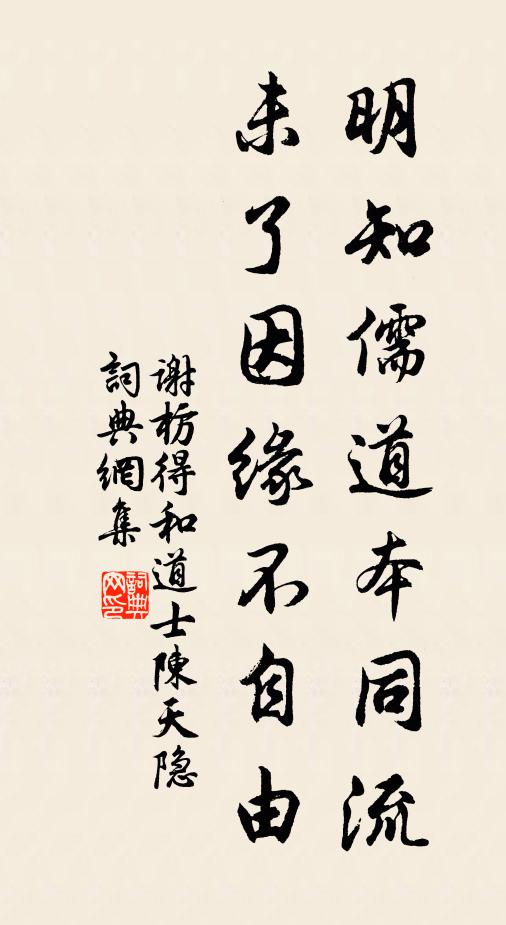 明知儒道本同流
未了因緣不自由
谢枋得和道士陳天隐
詞典網集
詞典網印